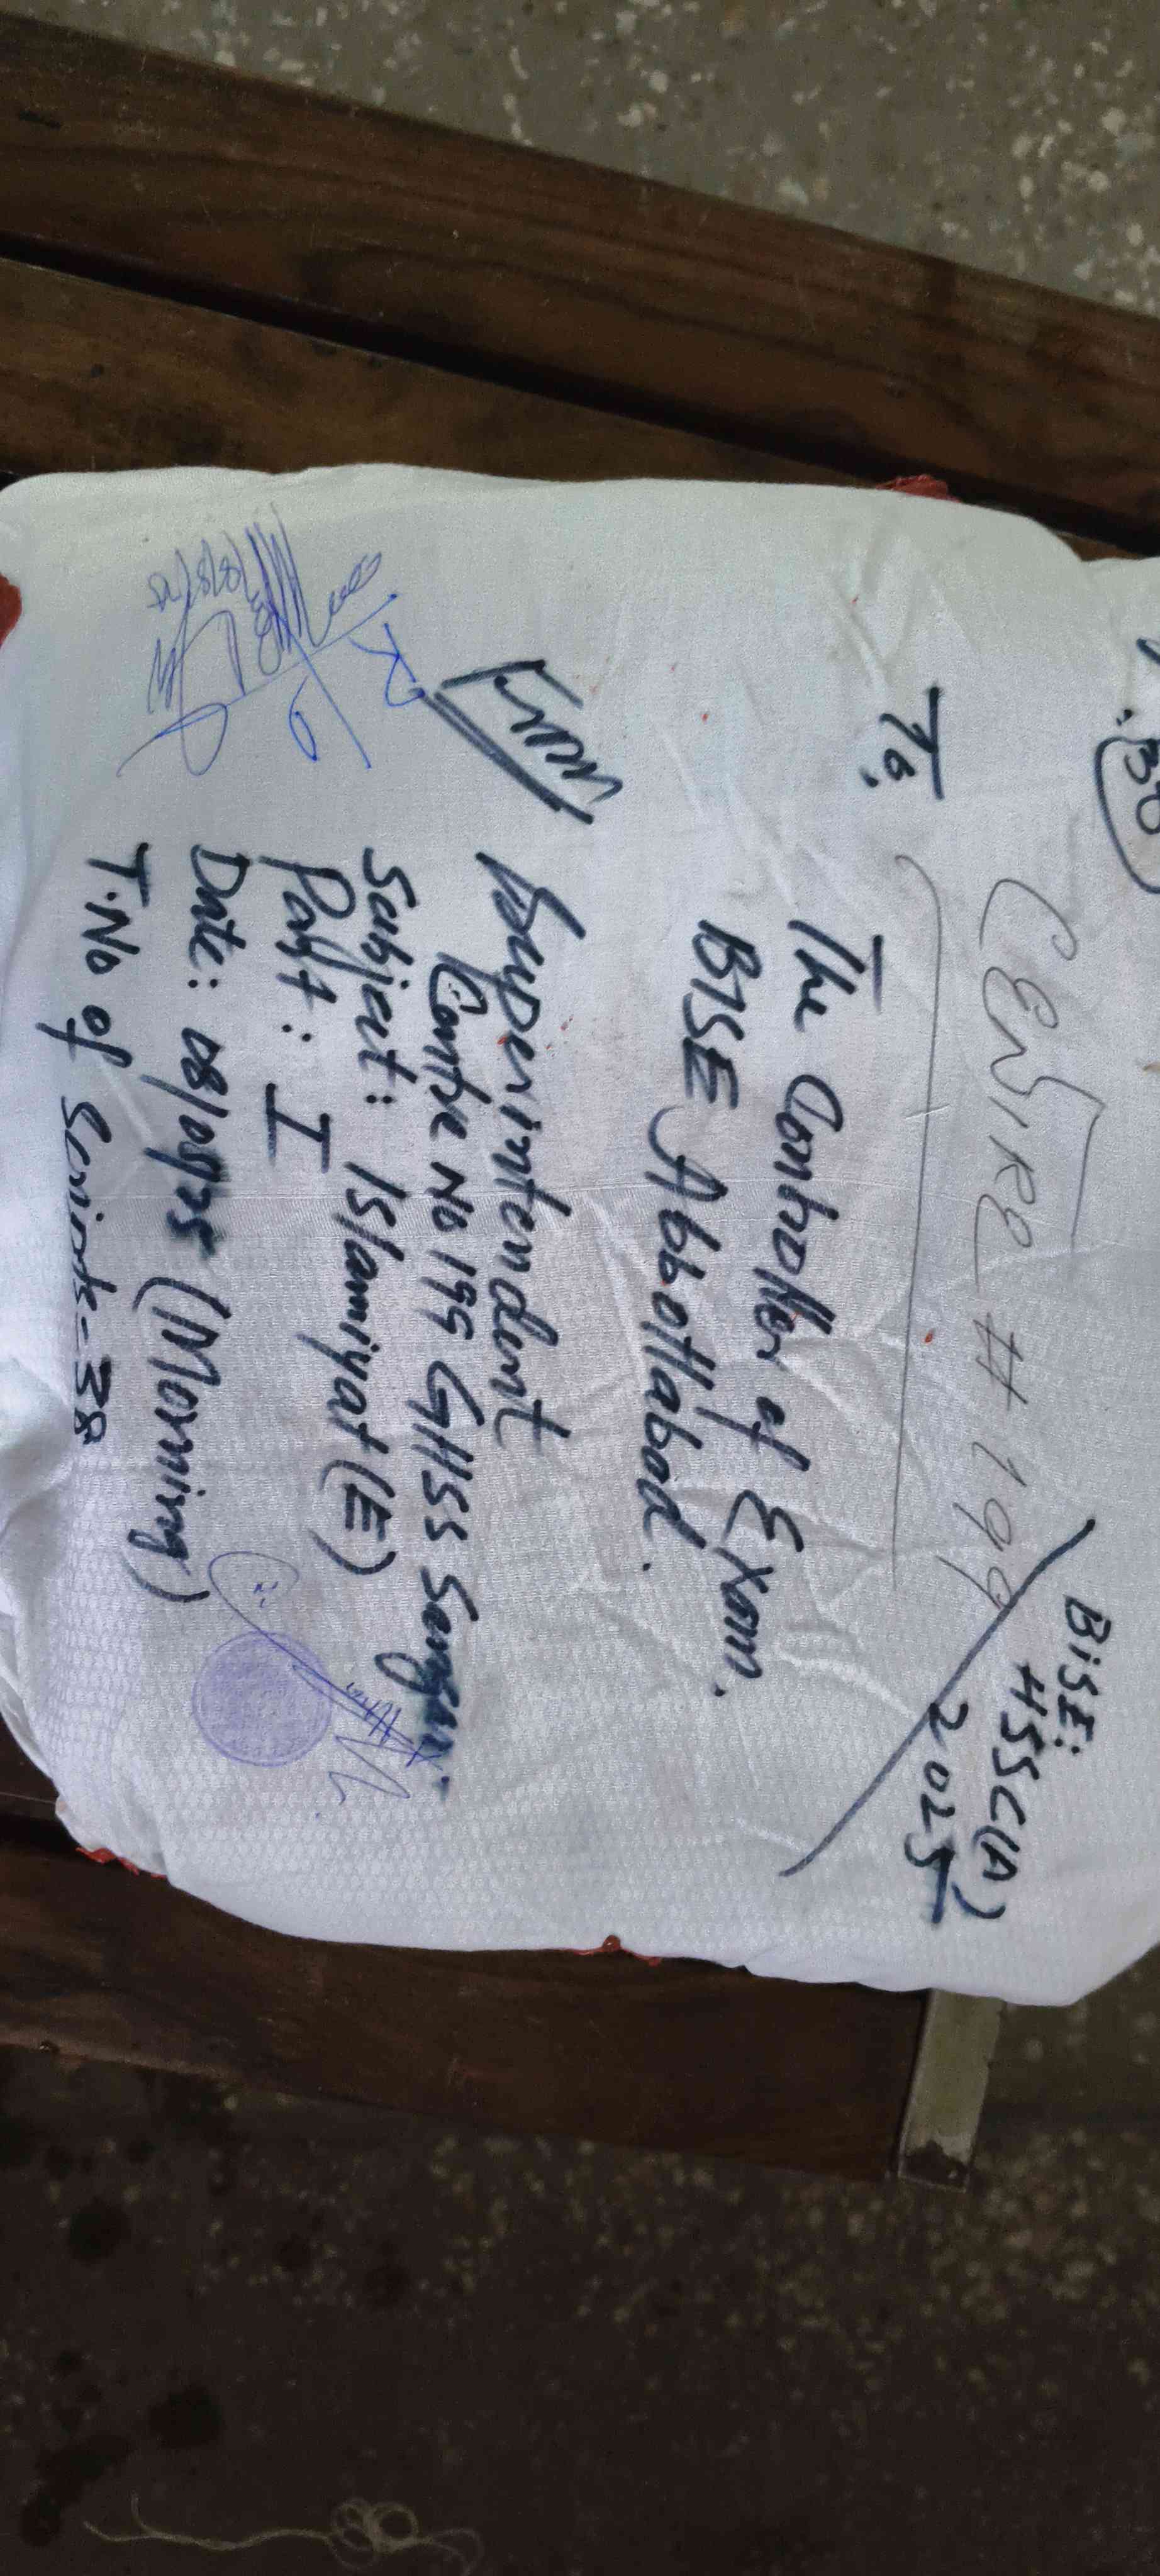 38
CENTRE # 199
BISE:
HSSC(A)
2025
To.
The Controller of Exam.
BISE Abbottabad.
Superintendent
Centre No 199 GHSS
Subject: Islamiyat (E)
Part: I
Date: (Morning)
T.No of Scripts = 38